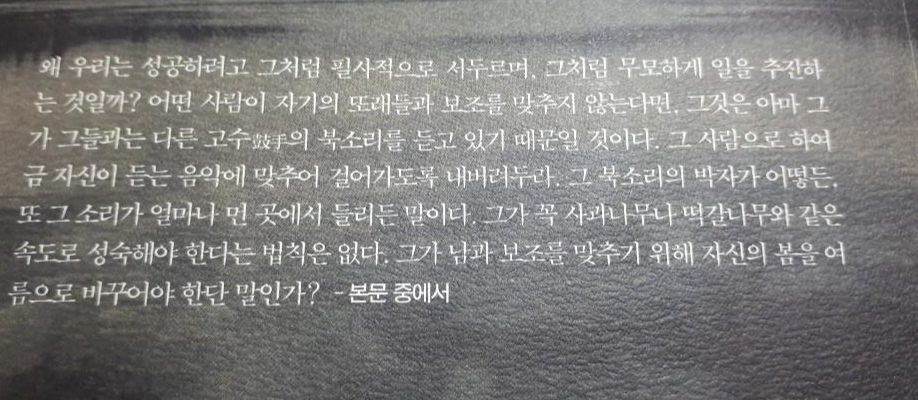 왜 우리는 성공하려고 그처럼 필사적으로 서두르며, 그처럼 무모하게 일을 추진하
는 것일까? 어떤 사람이 자기의 또래들과 보조를 맞추지 않는다면, 그것은 아마 그
가 그들과는 다른 고수鼓手의 북소리를 듣고 있기 때문일 것이다. 그 사람으로 하여
금 자신이 듣는 음악에 맞추어 걸어가도록 내버려두라. 그 북소리의 박자가 어떻든,
또 그 소리가 얼마나 먼 곳에서 들리든 말이다. 그가 꼭 사과나무나 떡갈나무와 같은
속도로 성숙해야 한다는 법칙은 없다. 그가 남과 보조를 맞추기 위해 자신의 봄을 여
름으로 바꾸어야 한단 말인가? - 본문 중에서